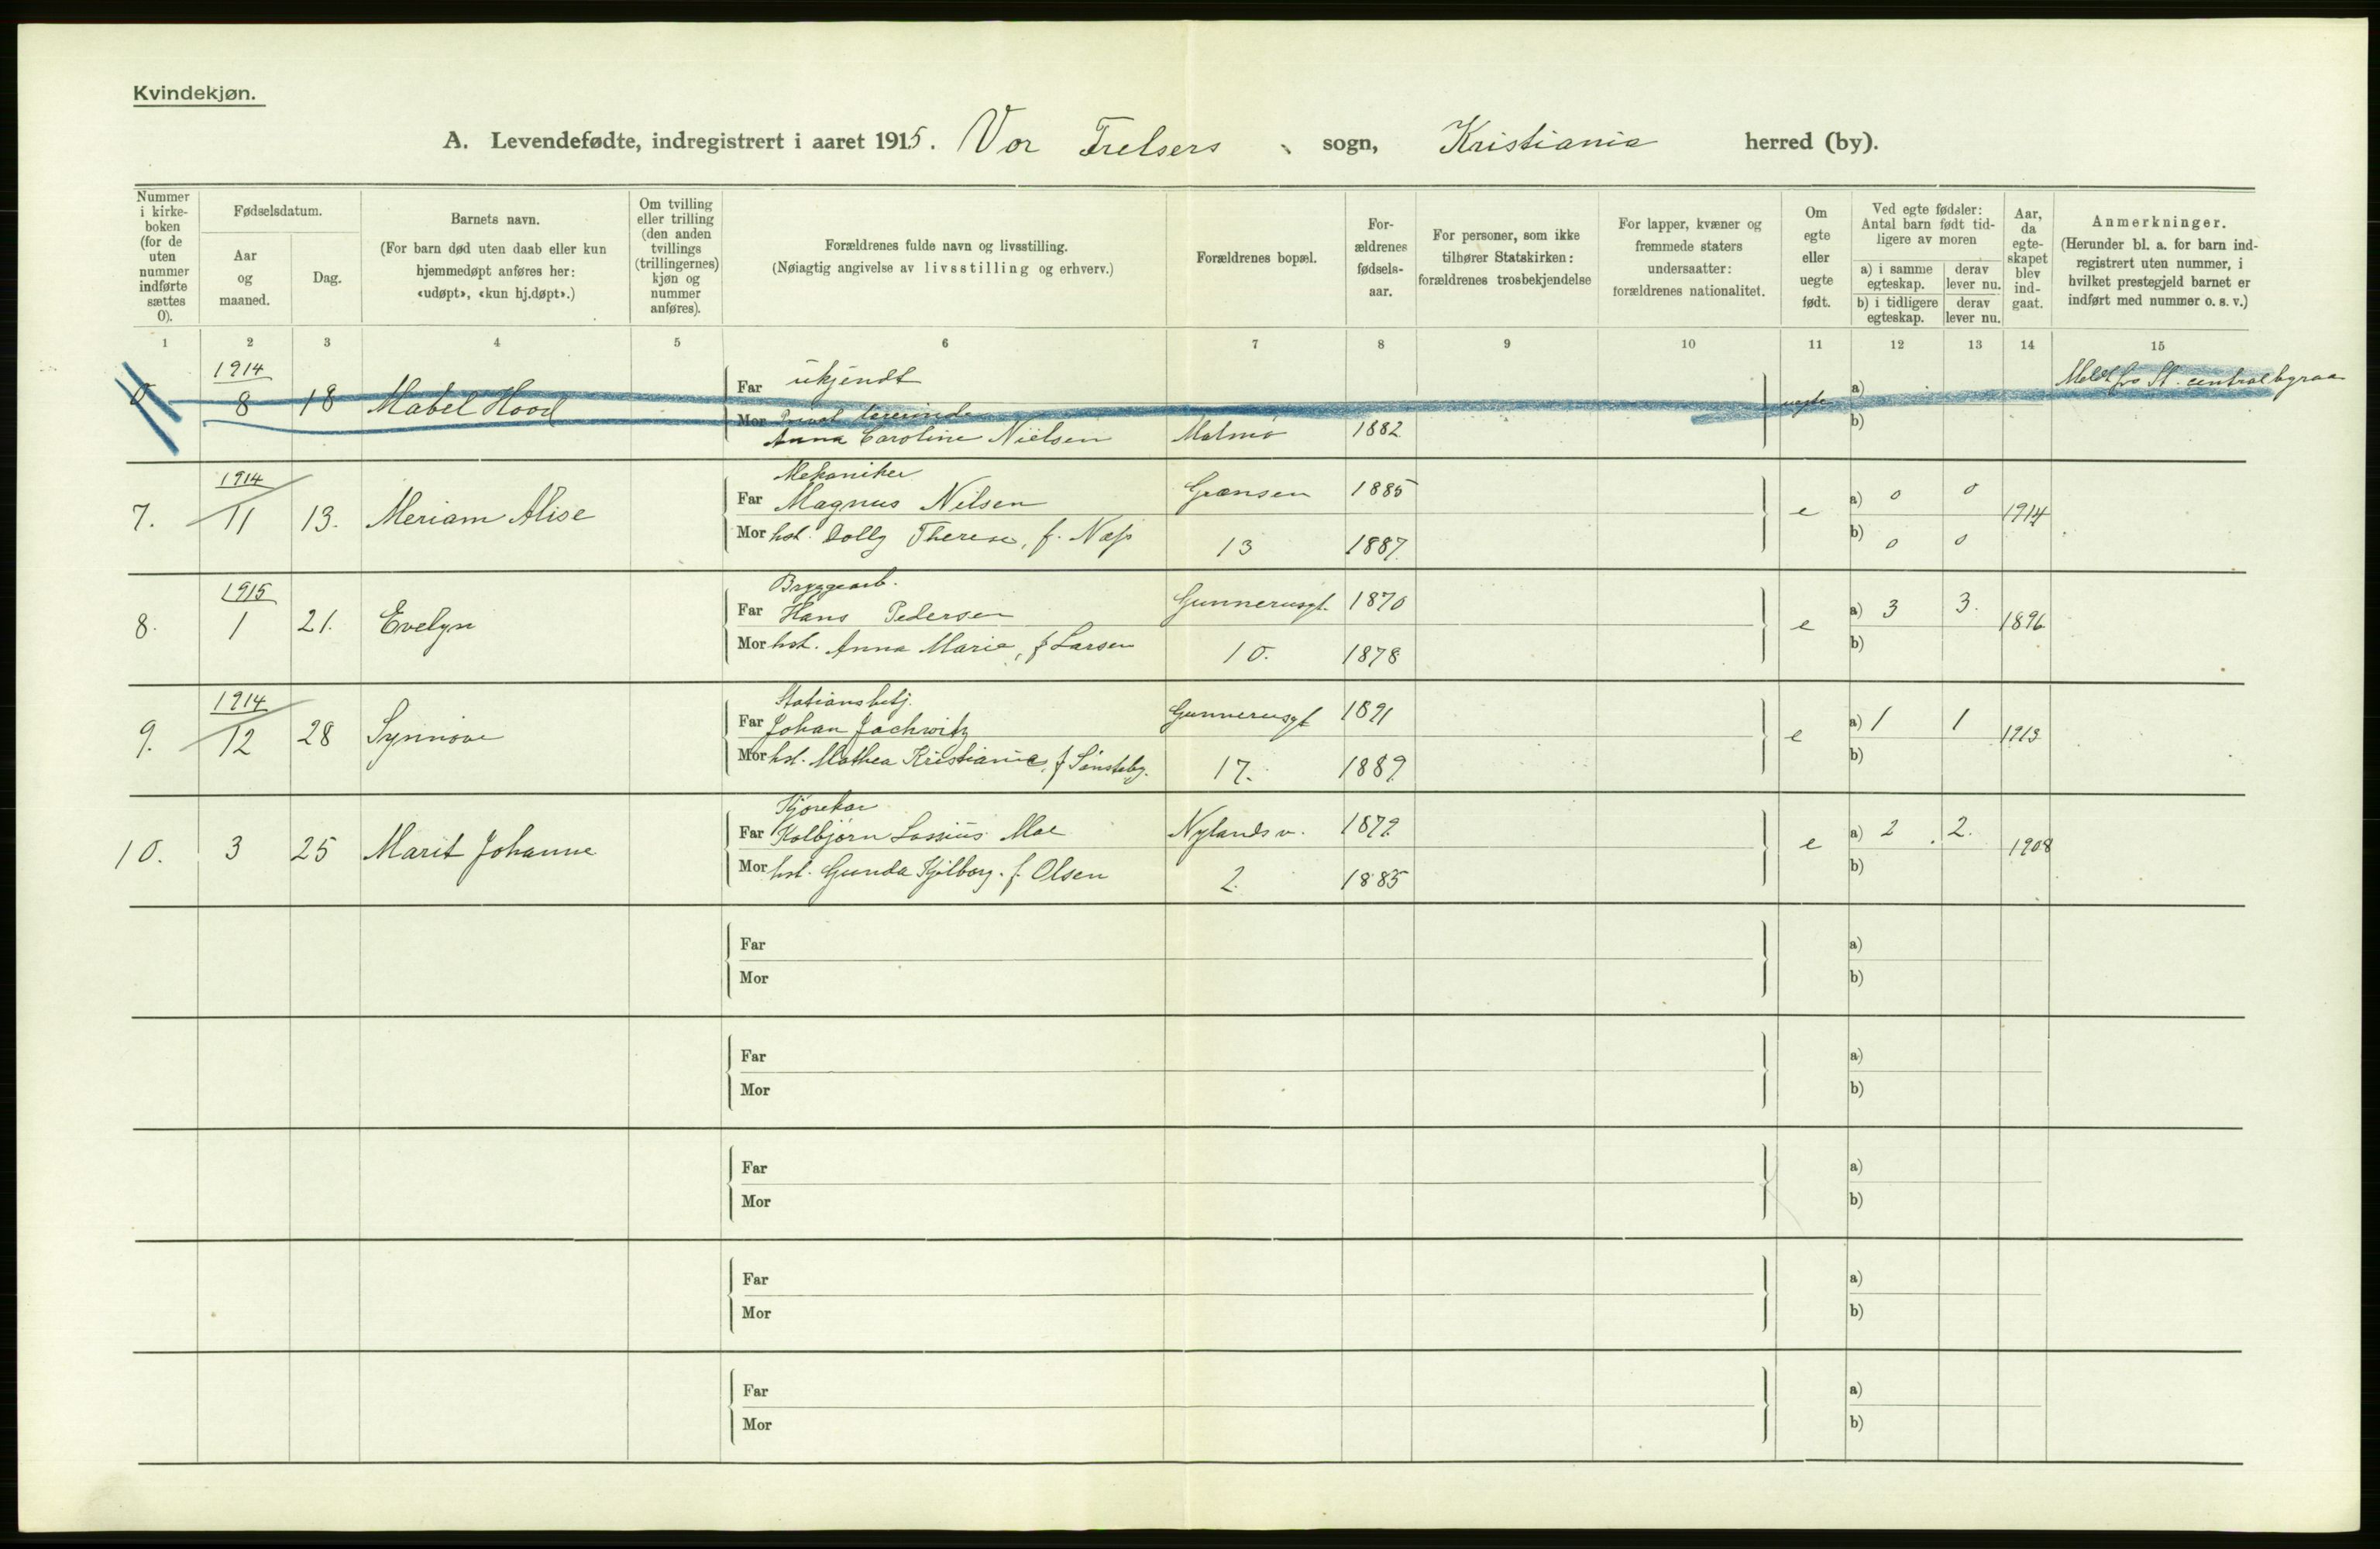 Kvindekjøn.
A. Levendefødte, indregistrert i aaret 1915. Vor Frelsers sogn, Kristiania herred (by).
Nummer i kirke-boken (for de uten nummer indførte sættes 0).
Fødselsdatum.
Aar og maaned.
Dag.
Barnets navn.
(For barn død uten daab eller kun hjemmedøpt anføres her: «udøpt», «kun hj.døpt».)
Om tvilling eller trilling (den anden tvillings (trillingernes) kjøn og nummer anføres).
Forældrenes fulde navn og livsstilling.
(Nøiagtig angivelse av livsstilling og erhverv.)
Forældrenes bopæl.
For-ældrenes fødsels-aar.
For personer, som ikke tilhører Statskirken: forældrenes trosbekjendelse
For lapper, kvæner og fremmede staters undersaatter: forældrenes nationalitet.
Om egte eller uegte født.
Ved egte fødsler: Antal barn født tid-ligere av moren
a) i samme egteskap.
derav lever nu.
b) i tidligere egteskap.
derav lever nu.
Aar, da egte-skapet blev ind-gaat.
Anmerkninger.
(Herunder bl. a. for barn ind-registrert uten nummer, i hvilket prestegjeld barnet er indført med nummer o. s. v.)
1 2 3 4 5 6 7 8 9 10 11 12 13 14 15
1914 Far ukjendt a) Meldt fra St. centralbyraa
0 8 18 Mabel Hood uegte
Mor Privat lærerinde
Anna Caroline Nielsen Malmø 1882 b)
1914 Mekaniker
Far Magnus Nilsen Grænsen 1885 a) 0 0
7. 11 13. Meriam Alise e 1914
Mor hst. Dolly Therese, f. Næss 13 1887. b) 0 0
1915 Bryggearb.
Far Hans Pedersen Gunnerusgt. 1870 a) 3 3.
8. 1 21. Evelyn e 1896
Mor hst. Anna Marie, f Larsen 10. 1878 b)
1914 Stationsbetj.
Far Johan Jachwitz Gunnerusgt 1891 a) 1 1
9. 12 28 Synnøve e 1913
Mor hst. Mathea Kristiania, f Sønsteby. 17. 1889. b)
Kjørekar
Far Kolbjørn Lossius Moe Nylandsv. 1879 a) 2 2.
10. 3 25 Marit Johanne e 1908
Mor hst. Gunda Kjilborg. f. Olsen 2. 1885 b)
Far a)
Mor b)
Far a)
Mor b)
Far a)
Mor b)
Far a)
Mor b)
Far a)
Mor b)